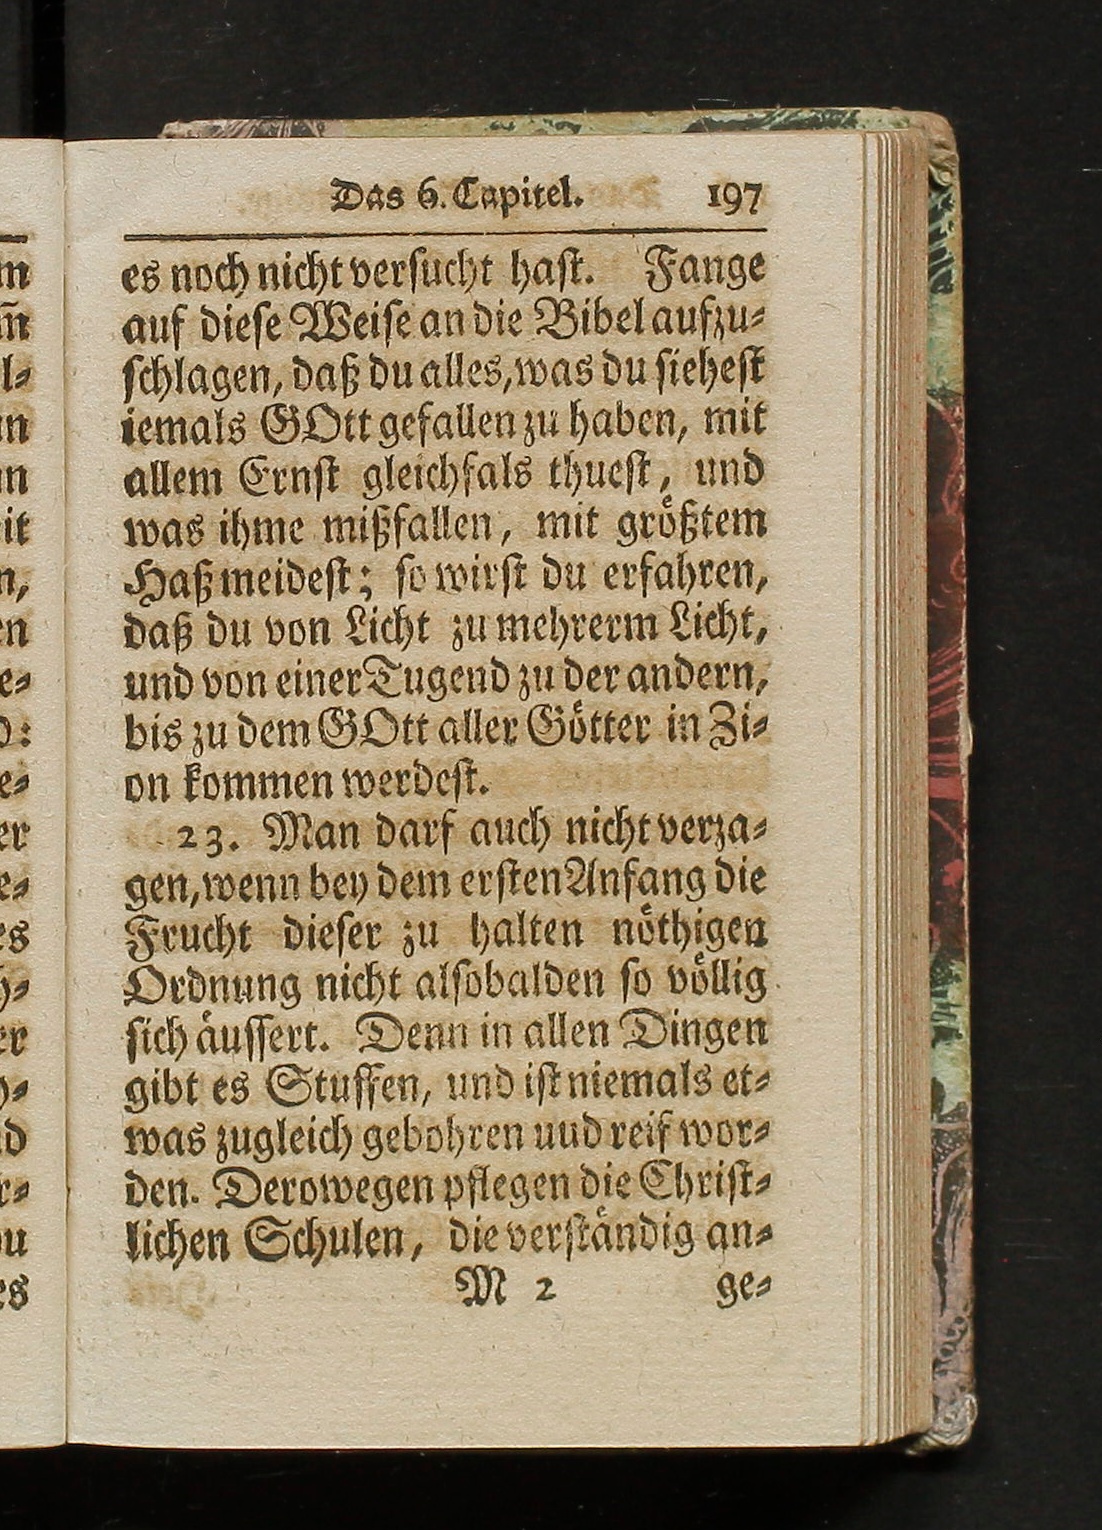 Das 6. Capitel. 197
es noch nicht versucht hast. Fange
auf diese Weise an die Bibel aufzu-
schlagen, daß du alles, was du siehest
iemals GOtt gefallen zu haben, mit
allem Ernst gleichfals thuest, und
was ihme mißfallen, mit größtem
Haß meidest; so wirst du erfahren,
daß du von Licht zu mehrerm Licht,
und von einer Tugend zu der andern,
bis zu dem GOtt aller Götter in Zi-
on kommen werdest.
23. Man darf auch nicht verza-
gen, wenn bey dem ersten Anfang die
Frucht dieser zu halten nöthigen
Ordnung nicht alsobalden so völlig
sich äussert. Denn in allen Dingen
gibt es Stuffen, und ist niemals et-
was zugleich gebohren uud reif wor-
den. Derowegen pflegen die Christ-
lichen Schulen, die verständig an-
M 2 ge-